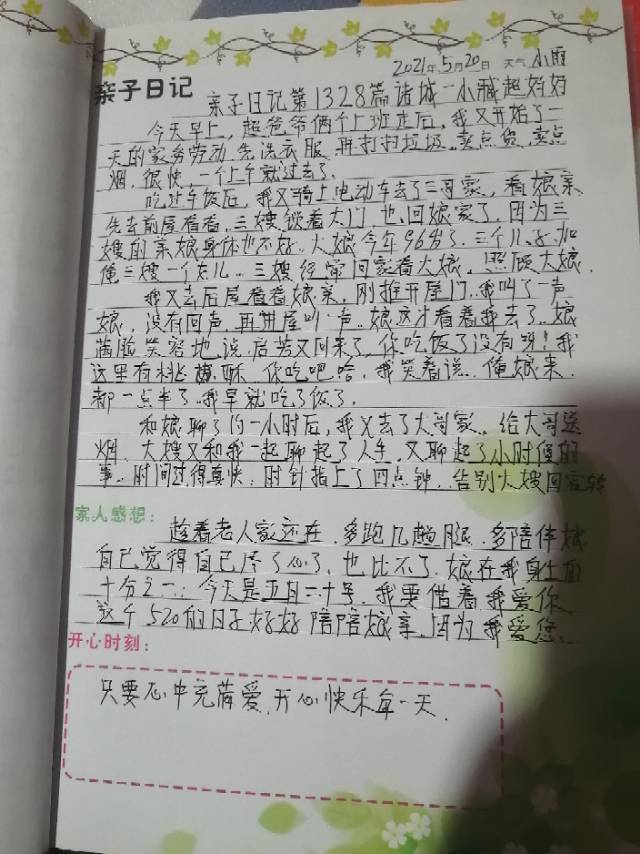 2021年5月20日 天气 小雨
亲子日记
亲子日记第1328篇诸城一小臧超妈妈
今天早上,超爸爷俩个上班走后,我又开始了一
天的家务劳动,先洗衣服,再扫扫垃圾,卖点货,卖点
烟,很快,一个上午就过去了.
吃过午饭后,我又骑上电动车去了三哥家,看娘亲
先去前屋看看,三嫂锁着大门,也回娘家了,因为三
嫂的亲娘身体也不好,大娘今年96岁了,三个儿子,加
俺三嫂一个女儿.三嫂经常回家看大娘,照顾大娘.
我又去后屋看看娘亲,刚推开屋门,我叫了一声
娘,没有回声,再进屋叫一声,娘这才看着我去了,娘
满脸笑容地说,后芳又回来了,你吃饭了没有呀!我
这里有桃酥,你吃吧哈,我笑着说,俺娘来,
都一点半了,我早就吃了饭了.
和娘聊了约一小时后,我又去了大哥家,给大哥送
烟,大嫂又和我一起聊起了人生,又聊起了小时候的
事,时间过得真快,时针指上了四点钟,告别大嫂回家转
家人感想:
趁着老人家还在,多跑几趟腿,多陪伴娘
自已觉得自已尽了心了,也比不了娘在我身上的
十分之一.今天是五月二十号,我要借着我爱你
这个520的日子好好陪陪娘亲,因为我爱您.
开心时刻:
只要心中充满爱,开心快乐每一天.